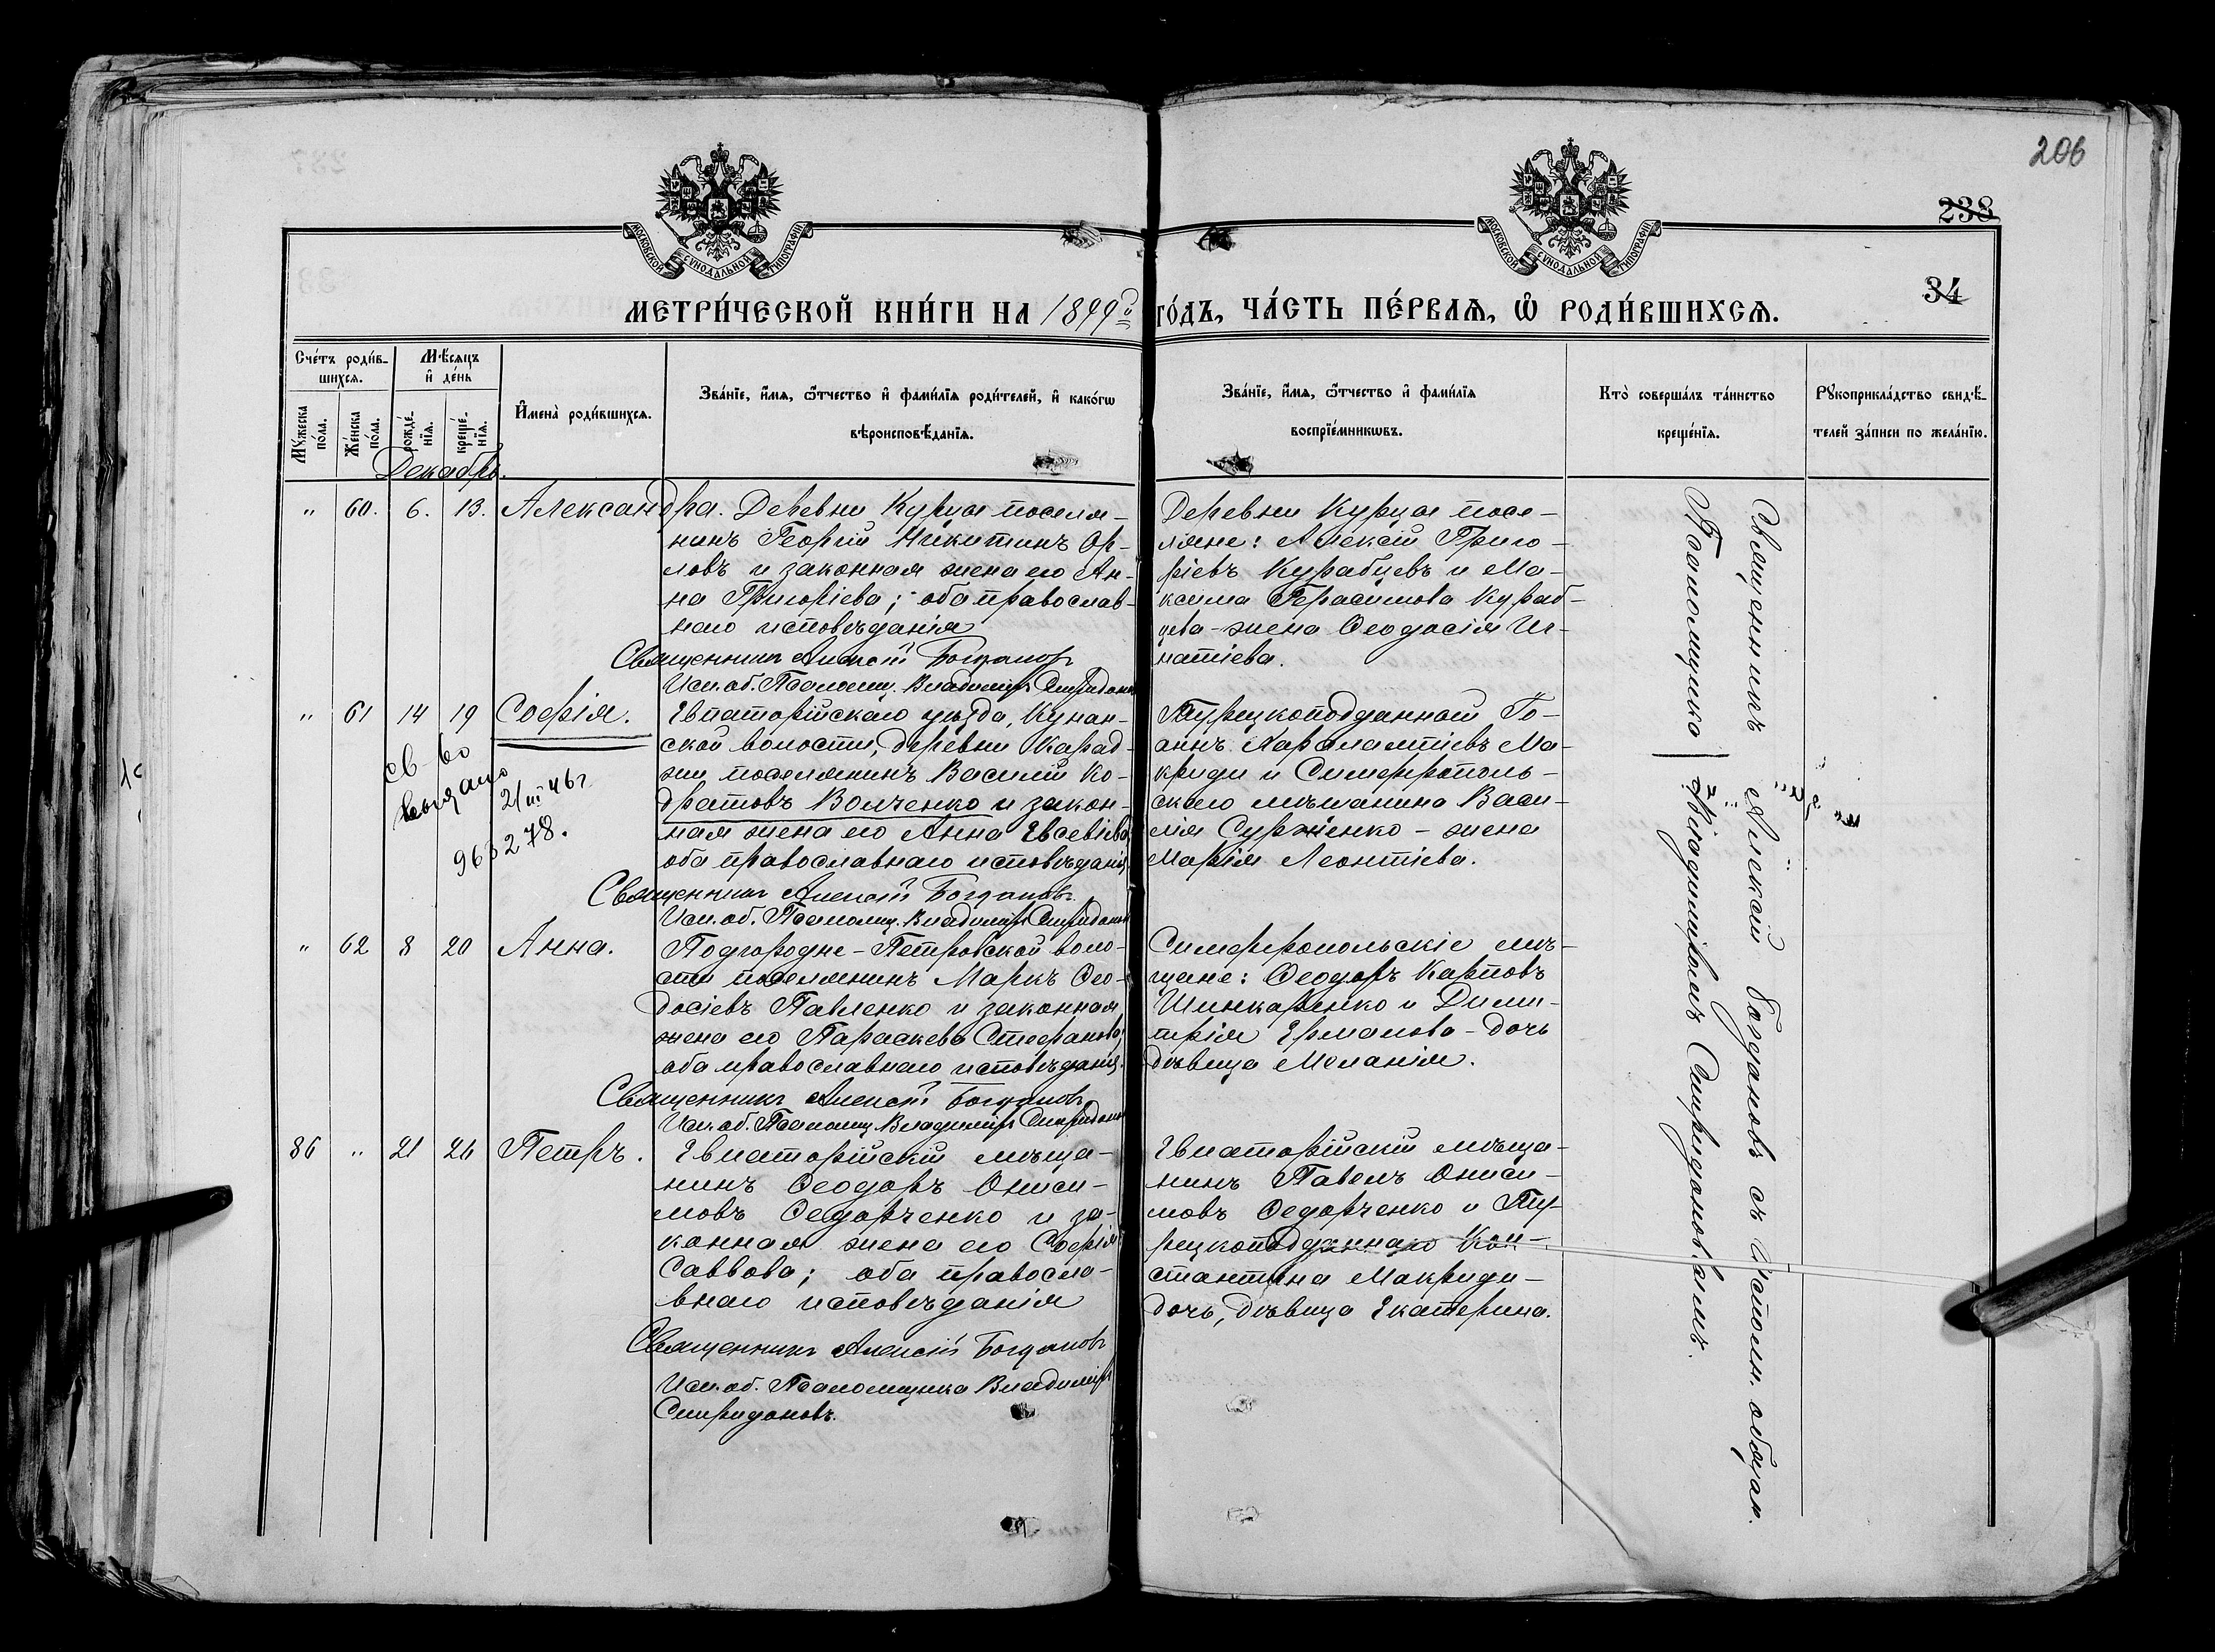 206
238
34
МОСКОВСКОЙ СѴНОДАЛЬНОЙ ТИПОГРАФІИ
МОСКОВСКОЙ СѴНОДАЛЬНОЙ ТИПОГРАФІИ
МЕТРИ́ЧЕСКОЙ КНИ́ГИ НА 1899й ГО́ДЪ, ЧА́СТЬ ПЕ́РВАѦ, Ѡ҆ РОДИ́ВШИХСѦ.
Сче́тъ роди́в-
шихсѧ.
Мѣ́сѧцъ
и҆ де́нь
Мꙋ́жеска по́ла.
Же́нска по́ла.
рожде́-нїѧ.
креще́-нїѧ.
И҆мена̀ роди́вшихсѧ.
Зва́нїе, и҆́мѧ, ѻ҆́тчество и҆ фами́лїѧ роди́телей, и҆ како́гѡ
вѣроисповѣ́данїѧ.
Зва́нїе, и҆́мѧ, ѻ҆́тчество и҆ фами́лїѧ
воспрїе́мникѡвъ.
Кто̀ соверша́лъ та́инство
креще́нїѧ.
Рꙋкоприкла́дство свидѣ́-
телей за́писи по жела́нїю.
Декабрь.
" 60. 6. 13. Александра. Деревни Курцы поселя-
нинъ Георгій Никитинъ Ор-
ловъ и законная жена его Ан-
на Григоріева; оба православ-
наго исповѣданія
Священникъ Алексій Богдановъ
Исп. об. Псаломщ. Владиміръ Спиридоновъ
Деревни Курцы посе-
ляне: Алексій Григо-
ріевъ Курабцевъ и Ма-
ксима Герасимова Кураб-
цева - жена Ѳеодосія Иг-
натіева.
" 61 14 19 Софія. Евпаторійскаго уѣзда, Кунан-
ской волости, деревни Карад-
жи поселянинъ Василій Ко-
дратовъ Волченко и закон-
ная жена его Анна Евсевіева
оба православнаго исповѣданія
Священникъ Алексій Богдановъ.
Исп. об. Псаломщ. Владиміръ Спиридоновъ
св-во
выдано
21/III 46 г.
963278.
Турецкоподданный Іо-
аннъ Харалампіевъ Ма-
криди и Симферополь-
скаго мѣщанина Васи-
лія Сурженко - жена
Марія Леонтіева.
" 62 8 20 Анна. Подгородне-Петровской воло-
сти поселянинъ Маркъ Ѳео-
досіевъ Павленко и законная
жена его Параскева Стефанова;
оба православнаго исповѣданія.
Священникъ Алексій Богдановъ
Исп. об. Псаломщ. Владиміръ Спиридоновъ
Симферопольскіе мѣ-
щане: Ѳеодоръ Карповъ
Шинкаренко и Дими-
трія Ермалова - дочь
дѣвица Меланія.
86 " 21 26 Петръ. Евпаторійскій мѣща-
нинъ Ѳеодоръ Описи-
мовъ Ѳедорченко и за-
конная жена его Софія
Саввова; оба правосла-
внаго исповѣданія
Священникъ Алексій Богдановъ
Исп. об. Псаломщика Владиміръ
Спиридоновъ.
Евпаторійскій мѣща-
нинъ Павелъ Ониси-
мовъ Ѳедорченко и Ту-
рецкоподданнаго Кон-
стантина Макриди -
дочь, дѣвица Екатерина.
Священникъ Алексій Богдановъ съ исполн. обязан.
Псаломщика Владиміромъ Спиридоновымъ.